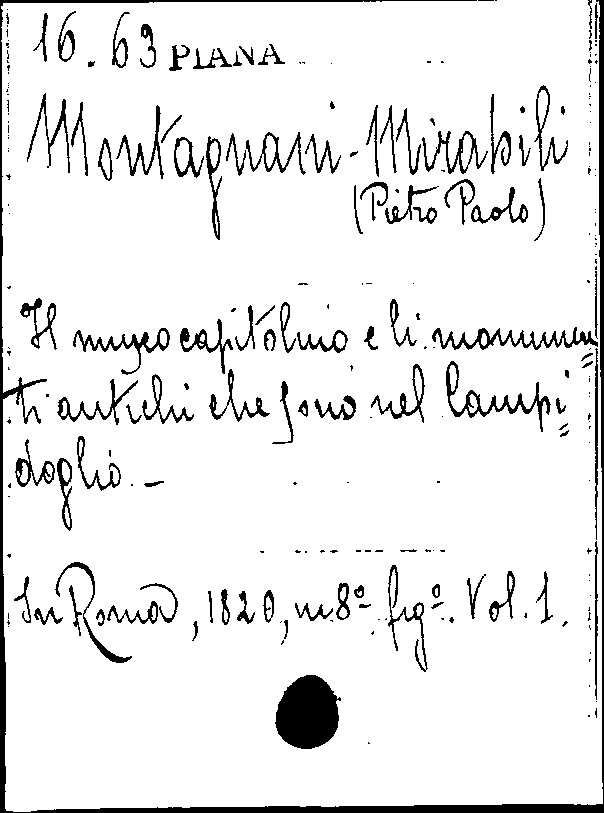 16.63 PIANA
Montagnani-Mirabili
(Pietro Paolo)
Il museo capitolino e li monumen=
ti antichi che sono nel Campi=
doglio._
In Roma, 1820, in 8º. figº. Vol. 1.